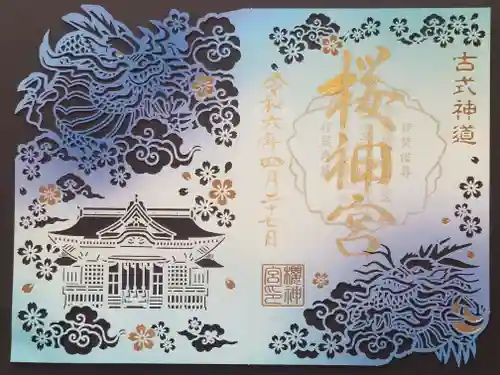 古式神道
桜神宮
令和六年四月二十七日
櫻神
宮印